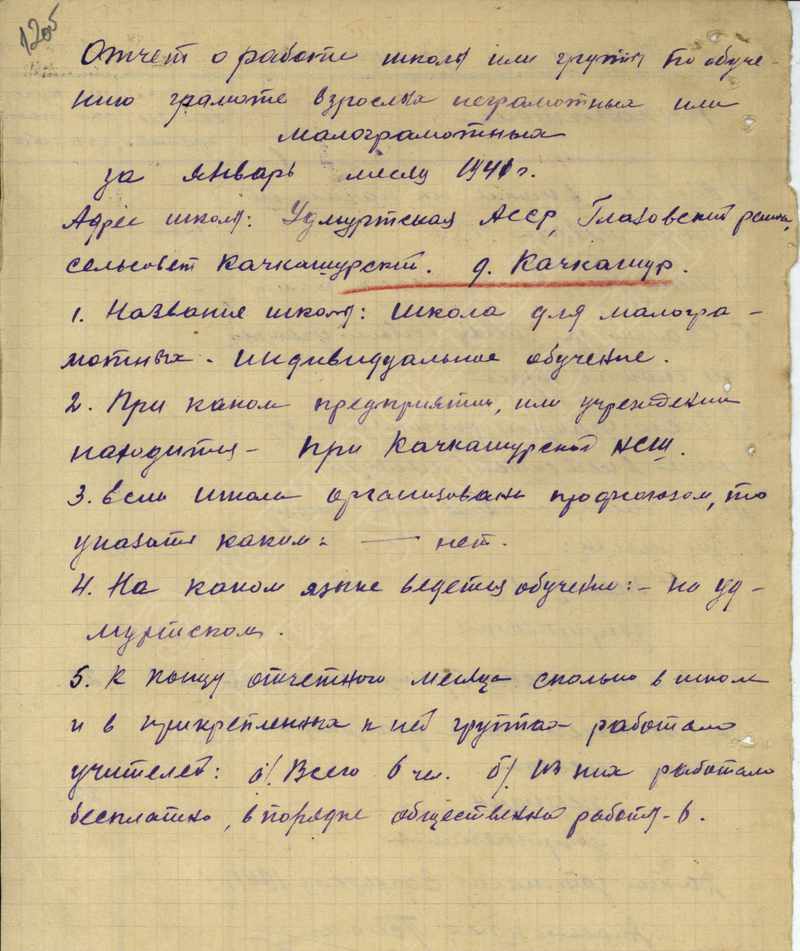 120б
Отчет о работе школы или группы по обуче-
нию грамоте взрослых неграмотных или
малограмотных
за январь месяц 1941 г.
Адрес школы: Удмуртская АССР, Глазовский район,
сельсовет Качкашурский. д. Качкашур.
1. Название школы: школа для малогра-
мотных - индивиддуальное обучение.
2. При каком предприятии, или учреждении
находится - при Качкашурской НСШ.
3. Если школа организована профсоюзом, то
указать каким: — нет.
4. На каком языке ведется обучение: - на уд-
муртском.
5. К концу отчетного месяца сколько в школе
и в прикрепленных к ней группах работало
учителей: а/. Всего 6 чел. б/. из них работало
бесплатно, в порядке общественной работы - 6.